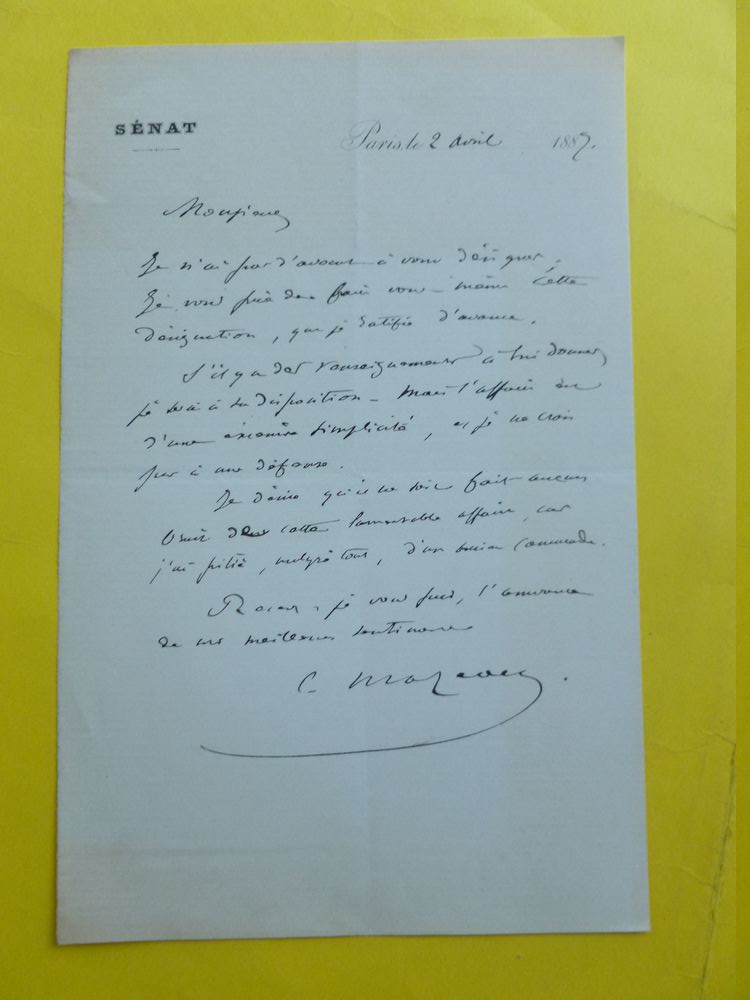 SÉNAT
Paris, le 2 avril 1887.
Monsieur
Je n'ai pas d'avoué à vous désigner.
Je vous prie de faire vous-même cette
désignation, que je ratifie d'avance.
S'il y a des renseignements à lui donner,
je suis à sa disposition - mais l'affaire est
d'une extrême simplicité, et je ne crois
pas à une défense.
Je désire qu'il ne soit fait aucun
bruit de cette lamentable affaire, car
j'ai pitié, malgré tout, d'un ancien camarade.
Recevez, je vous prie, l'assurance
de mes meilleurs sentiments
C. Mazeau.